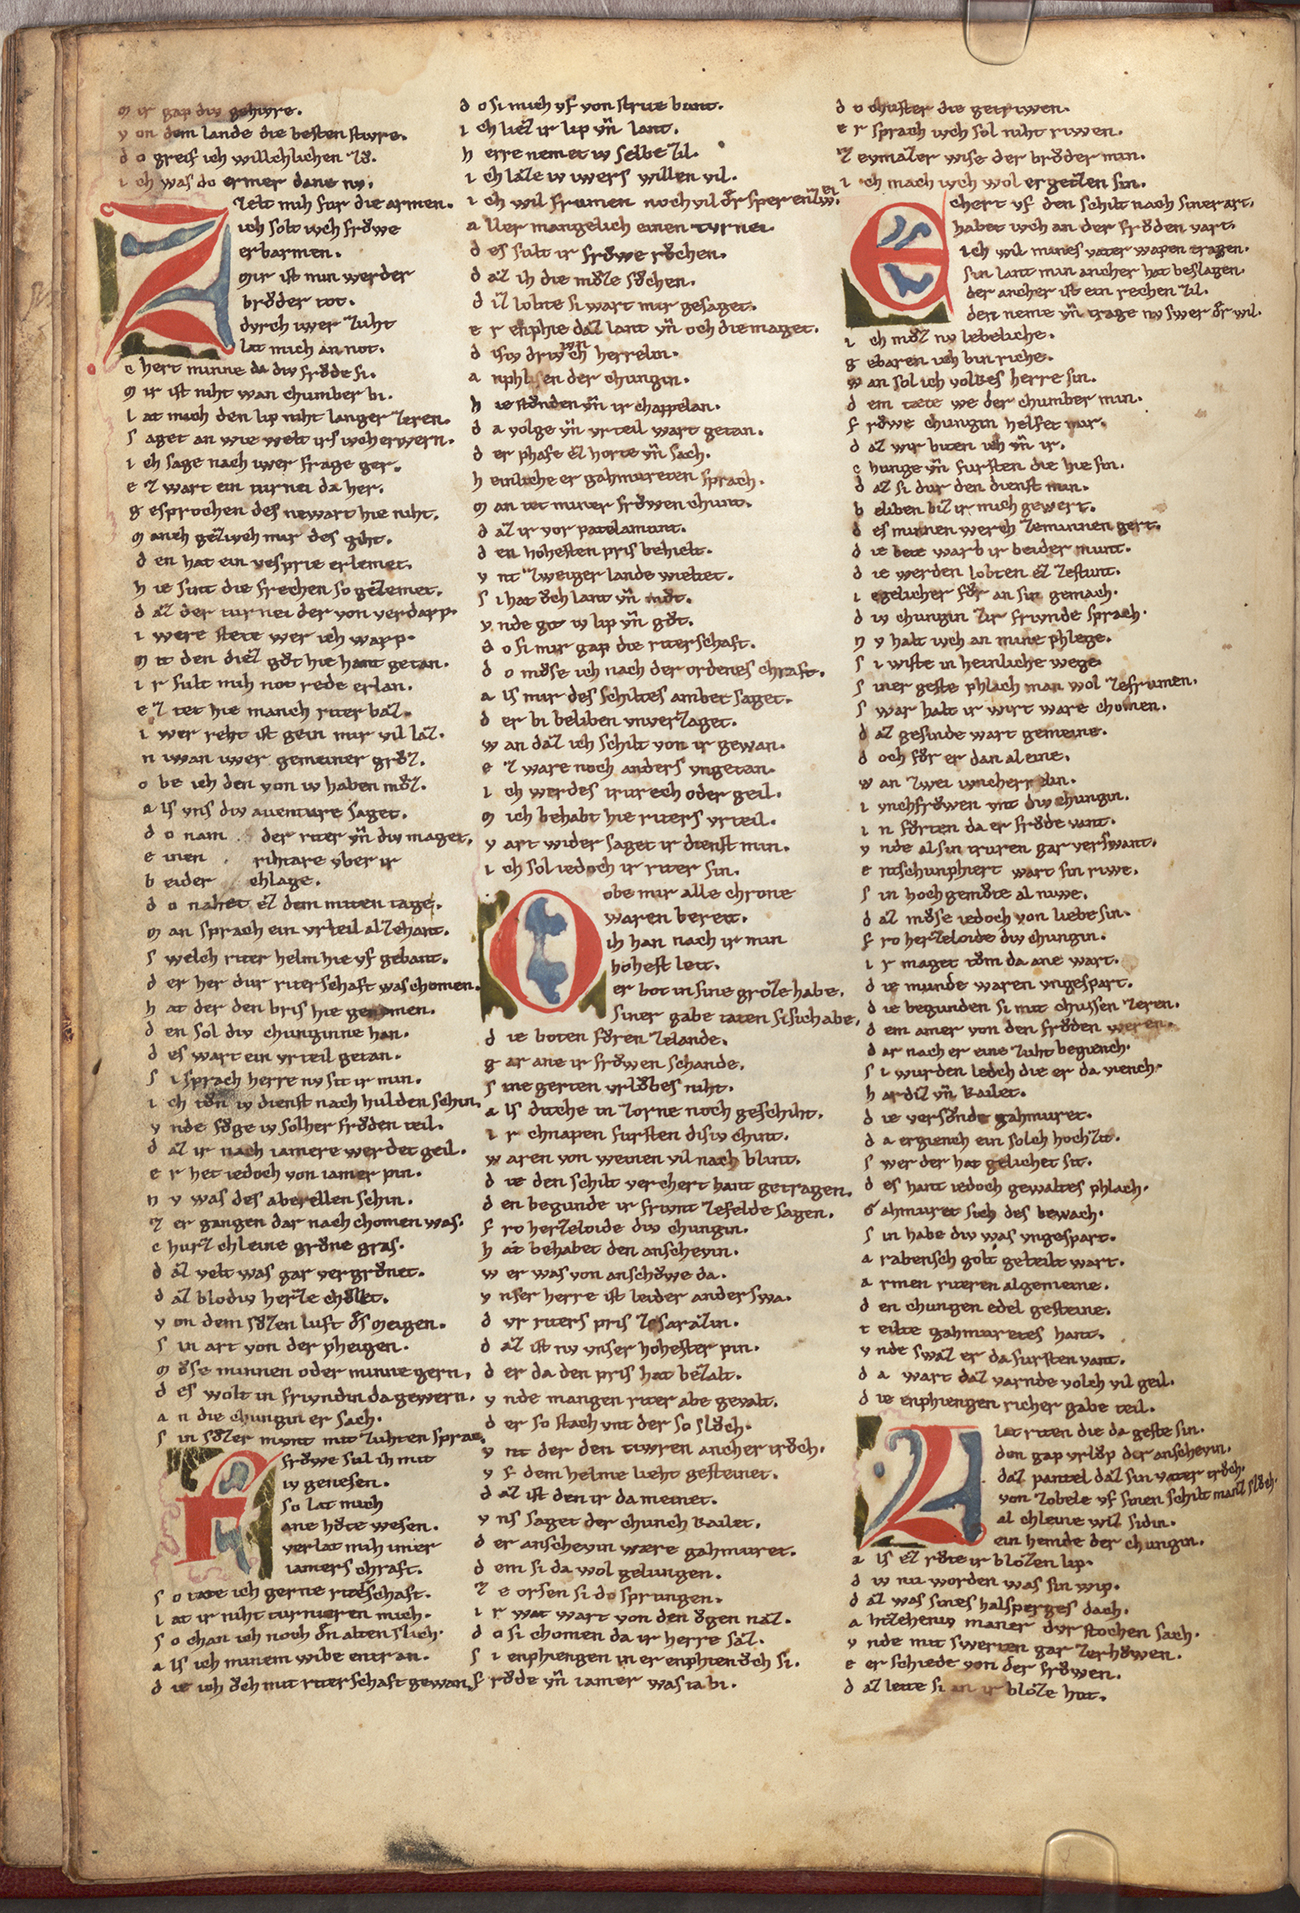 m ir gap div gehivre.
v on dem lande die besten stivre.
d o greif ich willichlichen zv̊.
i ch was do ermer dane nv.
Zelt mih fur die armen.
ich solt ivch frǒwe
erbarmen.
mir ist min werder
brv̊der tot.
dvrch iwer zuht
lat mich an not.
c hert minne da div frǒde si.
m ir ist niht wan chumber bi.
l at mich den lip niht langer zeren.
s aget an wie welt irs ivch erwern.
i ch sage nach iwer frage ger.
e z wart ein turnei da her.
g esprochen des newart hie niht.
m anch gezivch mir des giht.
d en hat ein vesprie erlemet.
h ie sint die frechen so gezemet.
d az der turnei der von verdarp.
i were stete wer ich warp.
m it den diez gv̊t hie hant getan.
i r sult mih not rede erlan.
e z tet hie manch riter baz.
i wer reht ist gein mir vil laz.
n iwan iwer gemeiner grv̊z.
o be ich den von iv haben mv̊z.
a ls vns div aventure saget.
d o nam der riter vñ div maget.
e inen rihtare vber ir
b eider chlage.
d o nahet ez dem miten tage.
m an sprach ein vrteil alzehant.
s welch riter helm hie vf gebant.
d er her dur riterschaft was chomen.
h at der den bris hie genomen.
d en sol div chunginne han.
d es wart ein vrteil getan.
s i sprach herre nv sit ir min.
i ch tv̊n iv dienst nach hulden schin.
v nde fv̊ge iv solher frǒden teil.
d az ir nach iamere werdet geil.
e r het iedoch von iamer pin.
n v was des aberellen schin.
z er gangen dar nach chomen was.
c hurz chleine grv̊ne gras.
d az velt was gar vergrv̊net.
d az blodiv herze chv̊let.
v on dem sv̊zen luft ds̃ meigen.
s in art von der pheigen.
m v̊se minnen oder minne gern.
d es wolt in frivndin da gewern.
a n die chungin er sach.
s in sv̊zer mvnt mit zuhten sprac.
frǒwe sul ih mit
iv genesen.
so lat mich
ane hv̊te wesen.
verlat mih imer
iamers chraft.
s o tate ich gerne riterschaft.
l at ir niht turnieren mich.
s o chan ich noch dñ alten slich.
a ls ich minem wibe entran.
d ie ich ǒch mit riterschaft gewan.
d o si mich vf von strite bant.
i ch liez ir lip vñ lant.
h erre nemet iv selbe zil.
i ch laze iv iwers willen vil.
i ch wil frumen noch vil dr̊ sper enzwei.
a ller mangelich einen turnei.
d es sult ir frǒwe rv̊chen.
d az ih die mv̊ze sv̊chen.
d iz lobte si wart mir gesaget.
e r enphie daz lant vñ och die maget.
d isiv driv ivnchherrelin.
a nphlisen der chungin.
h ie stv̊nden vñ ir chappelan.
d a volge vñ vrteil wart getan.
d er phafe ez horte vñ sach.
h einliche er gahmureten sprach.
m an tet miner frǒwen chunt.
d az ir vor patelamunt.
d en hohesten pris behielt.
v nt zweiger lande wieltet.
s i hat ǒch lant vñ mv̊t.
v nde git iv lip vñ gv̊t.
d o si mir gap die riterschaft.
d o mv̊se ich nach der ordenes chraft.
a ls mir des schiltes ambet saget.
d er bi beliben vnverzaget.
w an daz ich schilt von ir gewan.
e z ware noch anders vngetan.
i ch werdes trurech oder geil.
m ich behabt hie riters vrteil.
v art wider saget ir dienst min.
i ch sol iedoch ir riter sin.
Obe mir alle chrone
waren bereit.
ih han nach ir min
hohest leit.
er bot in sine groze habe.
siner gabe taten si sich abe.
d ie boten fv̊ren zelande.
g ar ane ir frǒwen schande.
s ine gerten vrlǒbes niht.
a ls diche in zorne noch geschiht.
i r chnapen fursten disiv chint.
w aren von weinen vil nach blint.
d ie den schilt verchert hant getragen.
d en begunde ir frivnt zefelde sagen.
f ro herzeloide div chungin.
h at behabet den anschevin.
w er was von anschǒwe da.
v nser herre ist leider anderswa.
d vr riters pris zesarazin.
d az ist nv vnser hohester pin.
d er da den pris hat bezalt.
v nde mangen riter abe gevalt.
d er so stach vnt der so slv̊ch.
v nt der den tivren ancher trv̊ch.
v f dem helme lieht gesteinet.
d az ist den ir da meinet.
v ns saget der chunch kailet.
d er anschevin wære gahmuret.
d em si da wol gelungen.
z e orsen si do sprungen.
i r wat wart von den ǒgen naz.
d o si chomen da ir herre saz.
s i enphiengen in er enphien ǒch si.
f rǒde vñ iamer was ia bi.
d o chuster die getriwen.
e r sprach ivch sol niht riwen.
z eymazer wise der brv̊der min.
i ch mach ivch wol ergetzen sin.
Chert vf den schilt nach siner art.
habet ivch an der frǒden vart.
ich wil mines vater wapen tragen.
sin lant min ancher hat beslagen.
der ancher ist ein rechen zil.
den neme vñ trage nv swer dr̊ wil.
i ch mv̊z nv lebeliche.
g ebaren ich bin riche.
w an sol ich volkes herre sin.
d em tæte we der chumber min.
f rǒwe chungin helfet mir.
d az wir biten ich vñ ir.
c hunge vñ fursten die hie sin.
d az si dur den dienst min.
b eliben biz ir mich gewert.
d es minnen werch zeminnen gert.
d ie bete warb ir beider munt.
d ie werden lobten ez zestunt.
i egelicher fv̊r an sin gemach.
d iv chungin zir frivnde sprach.
n v halt ivch an mine phlege.
s i wiste in heinliche wege.
s iner geste phlach man wol zefrumen.
s war halt ir wirt ware chomen.
d az gesinde wart gemeine.
d och fv̊r er dan aleine.
w an zwei ivncherrelin.
i vnchfrǒwen vnt div chungin.
i n fv̊rten da er frǒde vant.
v nde al sin truren gar verswant.
e ntschunphiert wart sin riwe.
s in hochgemv̊te al niwe.
d az mv̊se iedoch von liebe sin.
f ro herzeloide div chungin.
i r maget tv̊m da ane wart.
d ie munde waren vngespart.
d ie begunden si mit chussen zeren.
d em amer von den frǒden weren.
d ar nach er eine zuht begiench.
s i wurden ledch die er da viench.
h ardiz vñ kailet.
d ie versǒnde gahmuret.
d a ergiench ein solch hochzit.
s wer der hat gelichet sit.
d es hant iedoch gewaltes phlach.
G ahmuret sich des bewach.
s in habe div was vngespart.
a rabensch golt geteilt wart.
a rmen riteren algemeine.
d en chungen edel gesteine.
t eilte gahmuretes hant.
v nde swaz er da fursten vant.
d a wart daz varnde volch vil geil.
d ie enphiengen richer gabe teil.
Lat riten die da geste sin.
den gap vrlǒp der anschevin.
daz pantel daz sin vater trv̊ch.
von zobele vf sinen schilt manz slv̊ch.
al chleine wiz sidin.
ein hemde der chungin.
a ls ez rv̊te ir blozen lip.
d iv nu worden was sin wip.
d az was sines halsperges dach.
a htzeheniv maner dvrstochen sach.
v nde mit swerten gar zerhǒwen.
e er schiede von der frǒwen.
d az leite si an ir bloze hut.